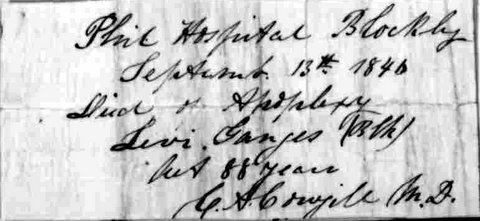 Phil Hospital Blockley
Septemb. 13th 1840
Died of Apoplexy
Levi Ganges (Blk)
Aet 88 years
C. A. Cowgill M.D.